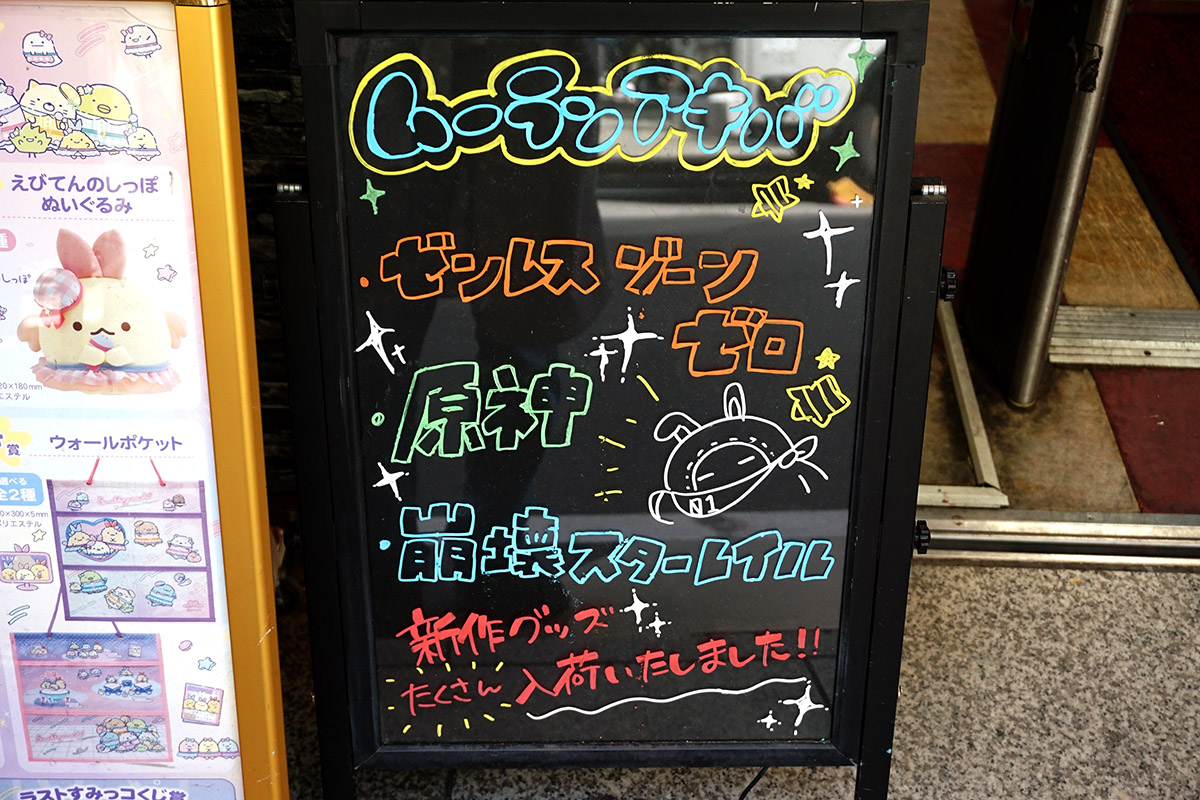 えびてんのしっぽ
ぬいぐるみ
しっぽ
20×180mm
エステル
賞
ウォールポケット
選べる
全2種
0×300×5mm
ポリエステル
ラストすみっコくじ賞
ムーランアキバ
・ゼンレス ゾーン
ゼロ
・原神
01
・崩壊スターレイル
新作グッズ
たくさん 入荷いたしました!!